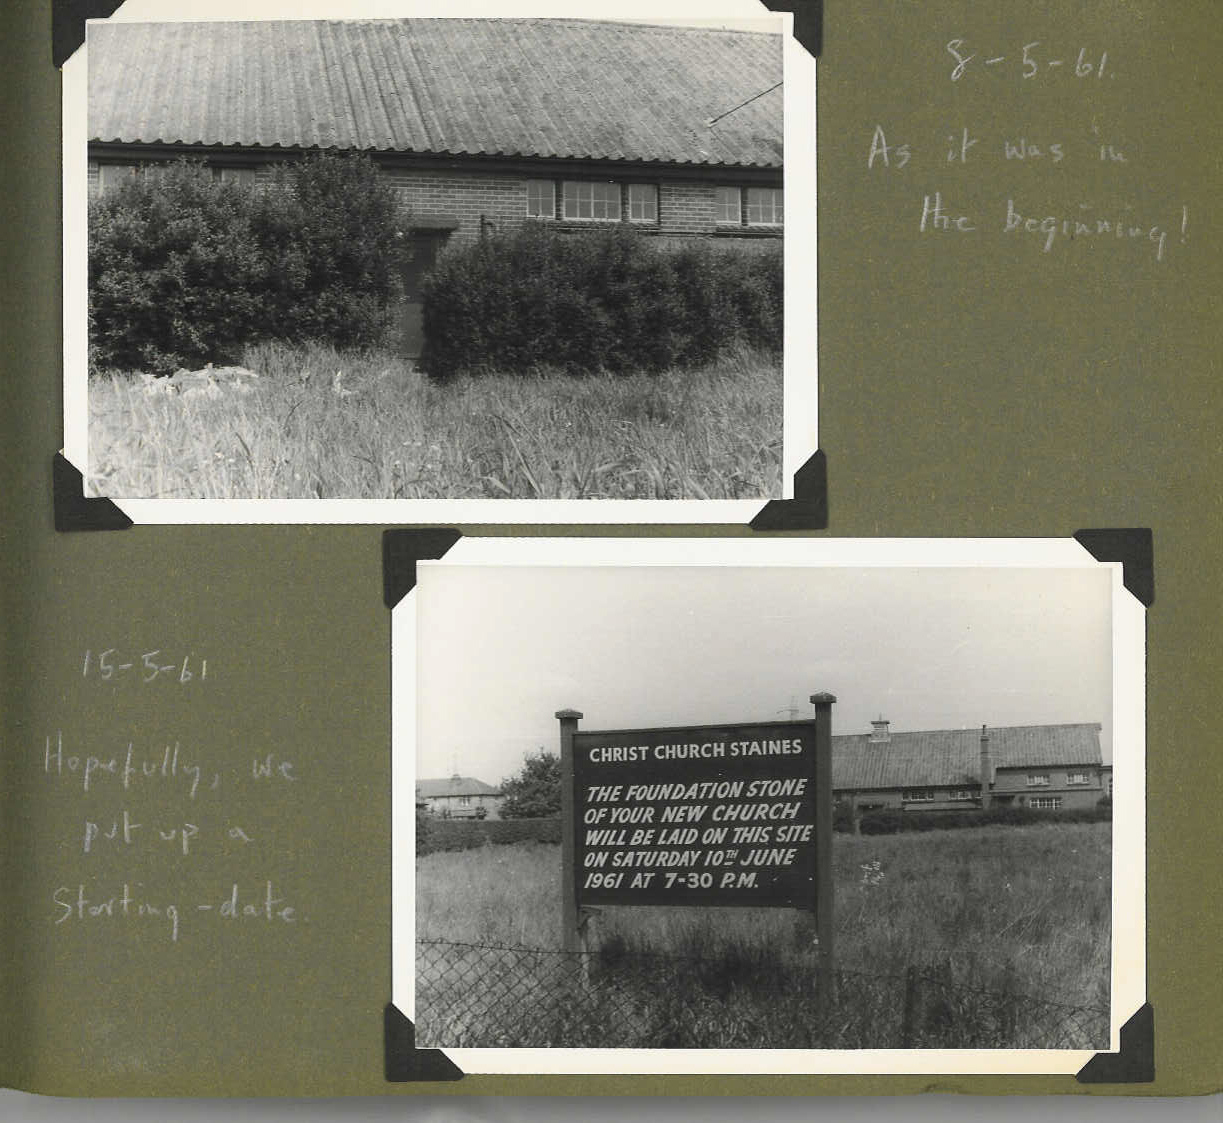 8-5-61.
As it was in
the beginning!
15-5-61
Hopefully, we
put up a
Starting-date.
CHRIST CHURCH STAINES
THE FOUNDATION STONE
OF YOUR NEW CHURCH
WILL BE LAID ON THIS SITE
ON SATURDAY 10TH JUNE
1961 AT 7-30 P.M.